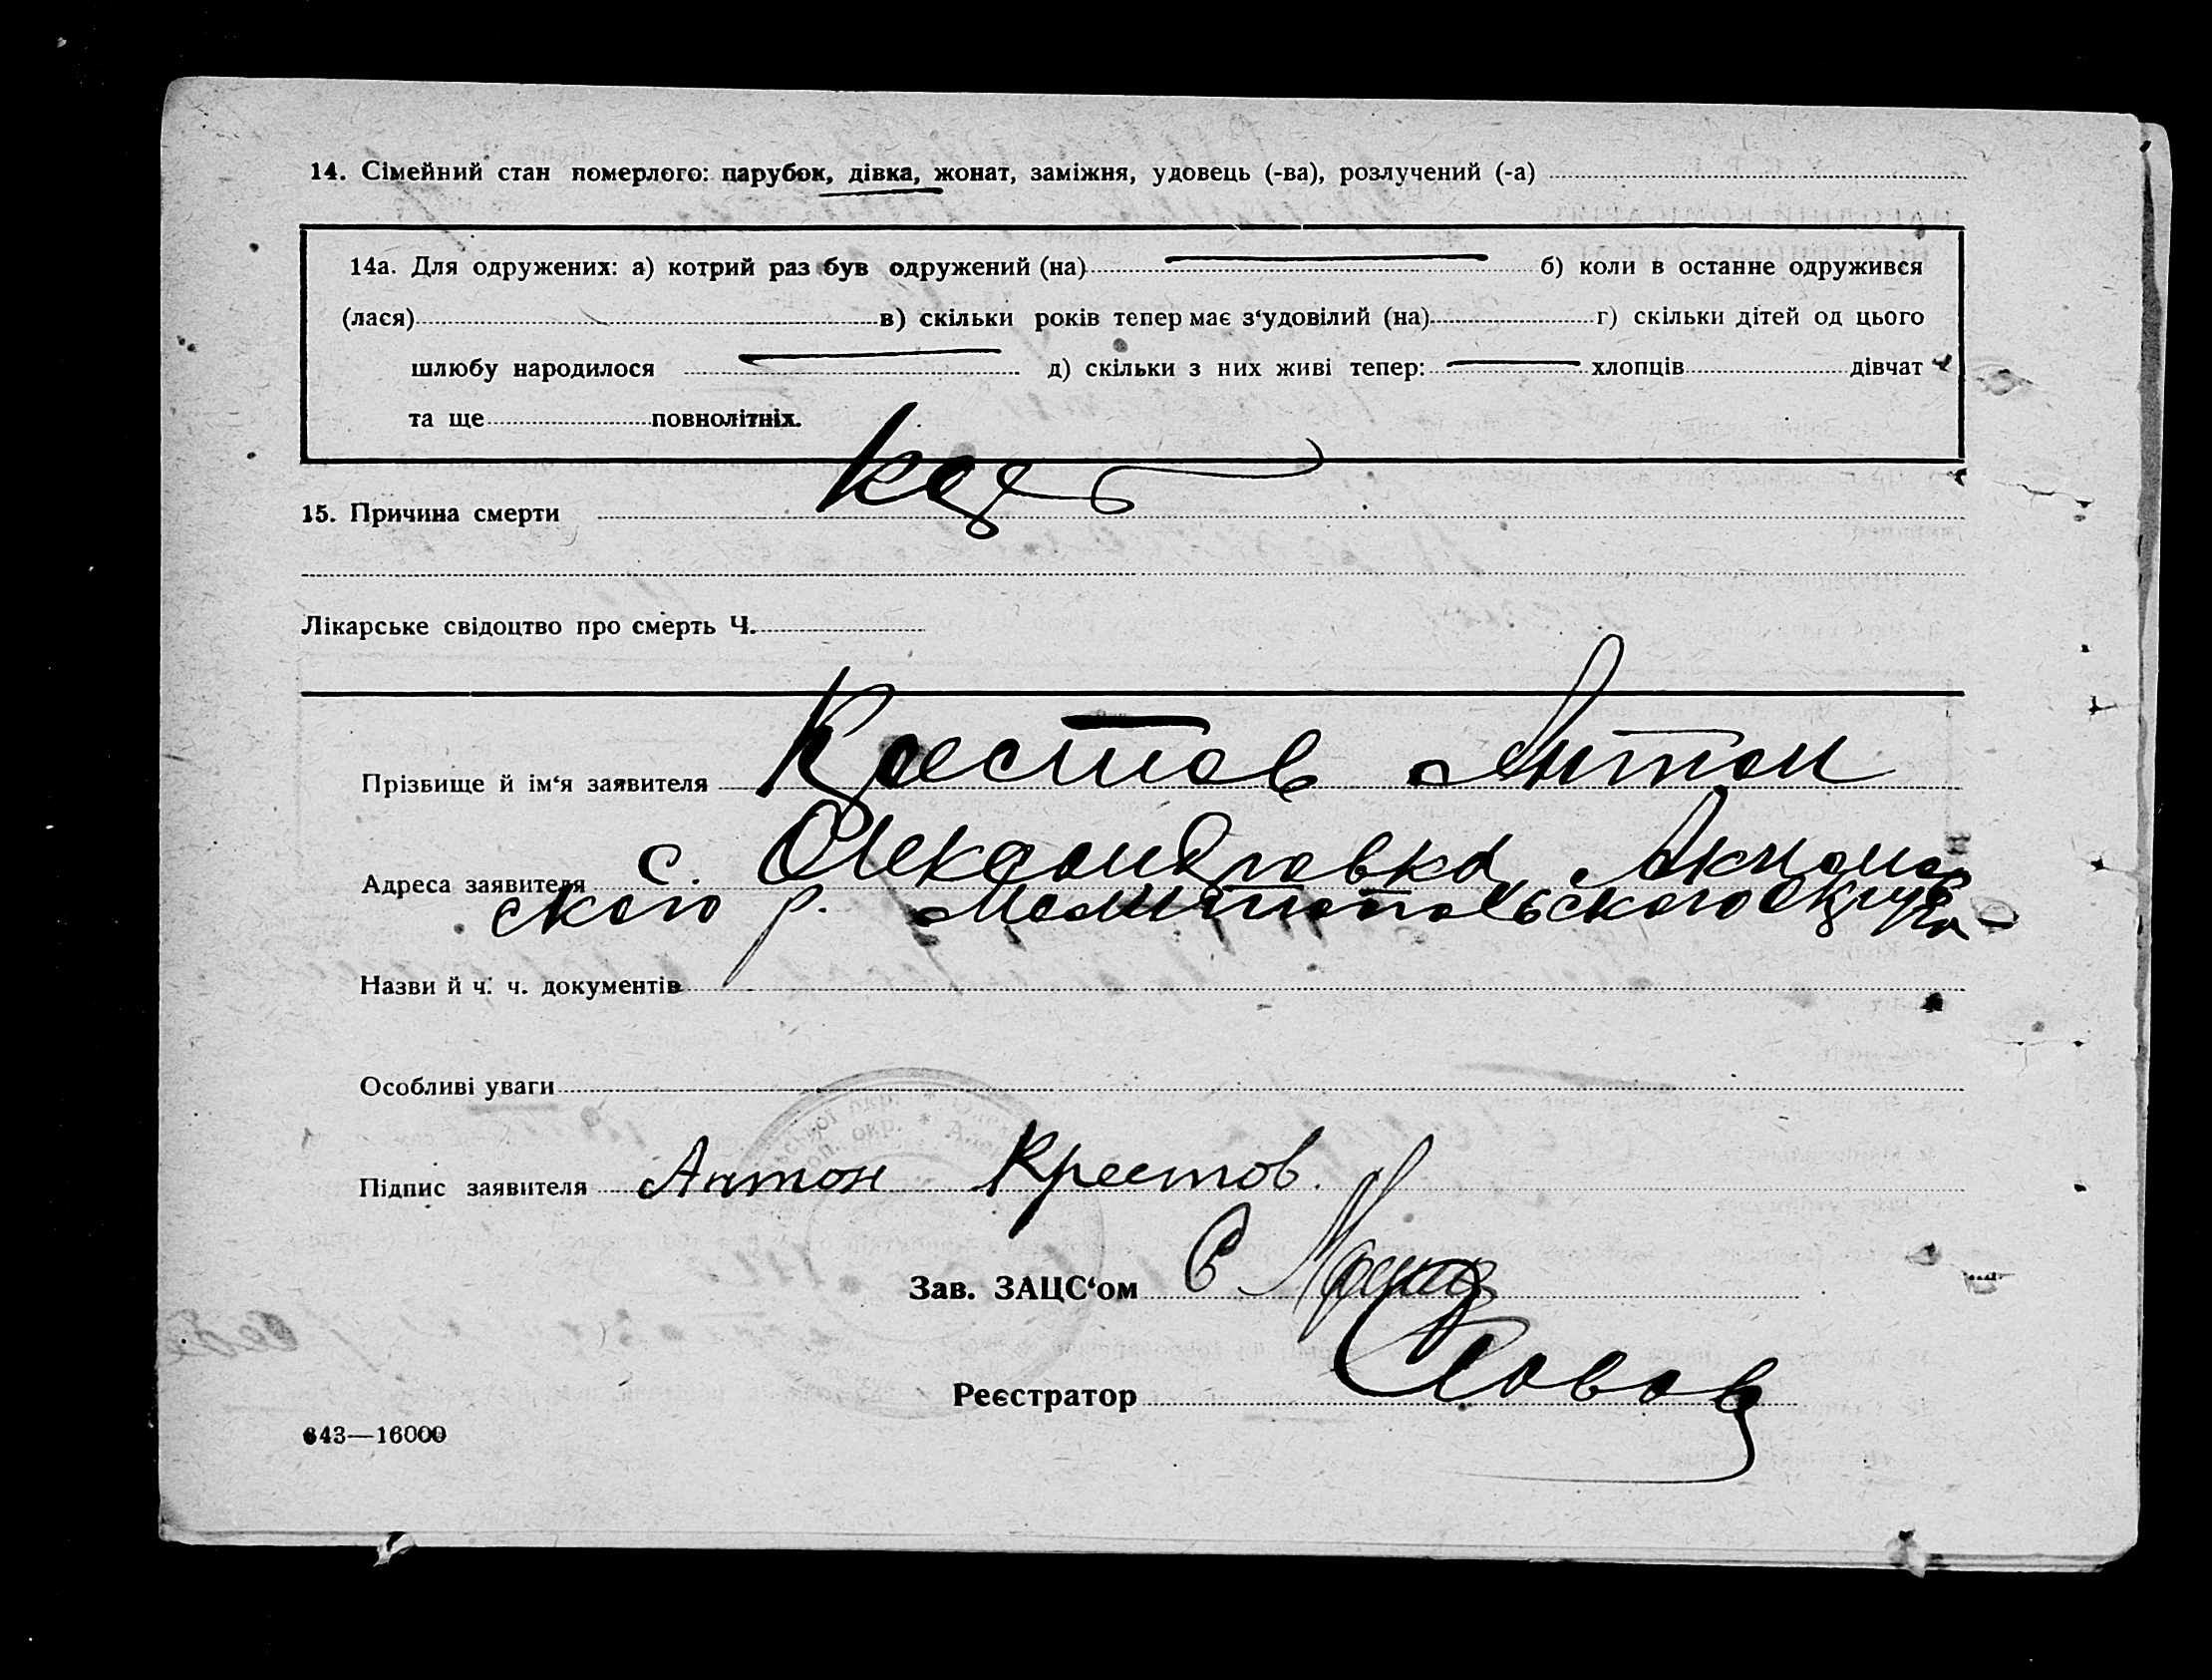 14. Сімейний стан померлого: парубок, дівка, жонат, заміжня, удовець (-ва), розлучений (-а)
14а. Для одружених: а) котрий раз був одружений (на) б) коли в останне одружився
(лася) в) скільки років тепер має з‘удовілий (на) г) скільки дітей од цього
шлюбу народилося д) скільки з них живі тепер: хлопців дівчат
та ще повнолітніх.
15. Причина смерти
Лікарське свідоцтво про смерть Ч.
Прізвище й ім‘я заявителя Крестов Антон
Адреса заявителя с. Олександровка
ского р. Мелитопольского округа
Назви й ч. ч. документів
Особливі уваги
Підпис заявителя Антон Крестов.
Зав. ЗАЦС‘ом
Реєстратор
643—16000